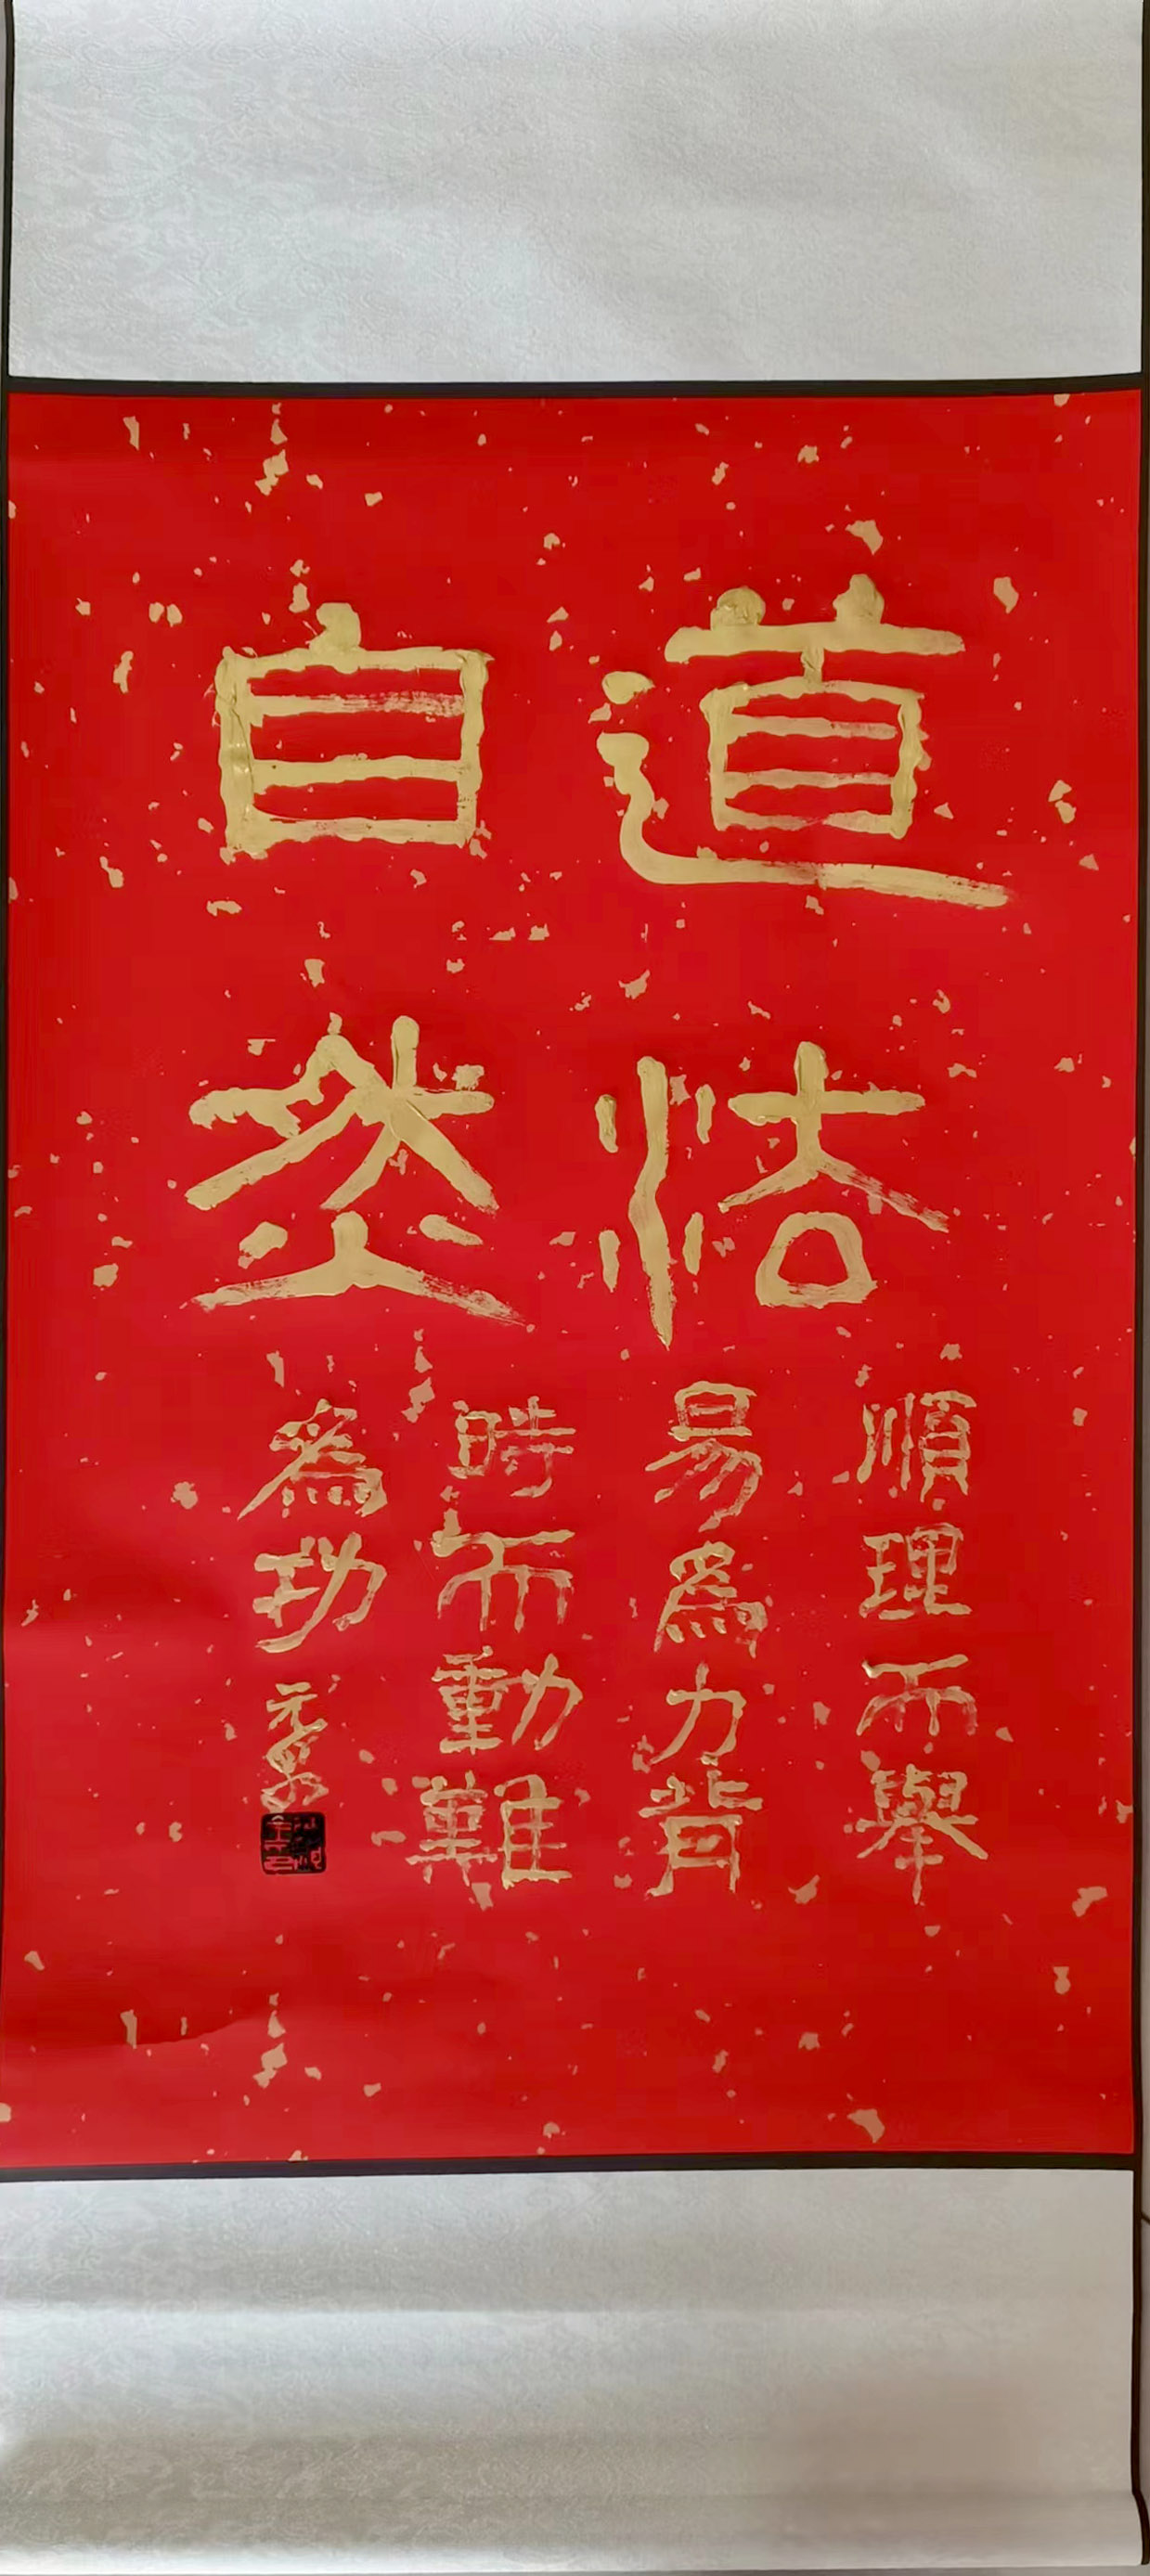 道法
自然
順理而舉
易爲力背
時而動難
爲功